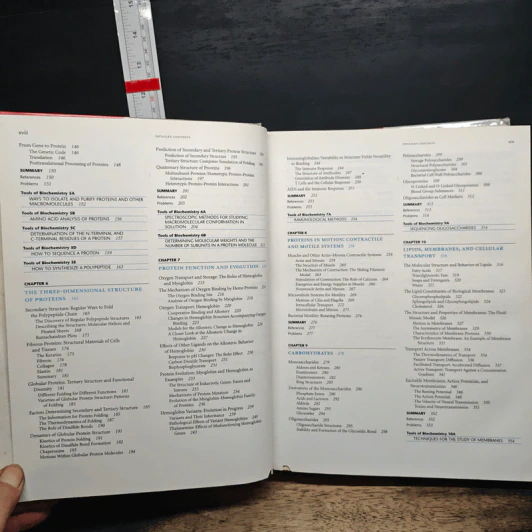 xviii
DETAILED CONTENTS
From Gene to Protein 148
The Genetic Code 148
Translation 146
Posttranslational Processing of Proteins 148
SUMMARY 150
References 150
Problems 152
Tools of Biochemistry 5A
WAYS TO ISOLATE AND PURIFY PROTEINS AND OTHER
MACROMOLECULES 152
Tools of Biochemistry 5B
AMINO ACID ANALYSIS OF PROTEINS 156
Tools of Biochemistry 5C
DETERMINATION OF THE N-TERMINAL AND
C-TERMINAL RESIDUES OF A PROTEIN 157
Tools of Biochemistry 5D
HOW TO SEQUENCE A PROTEIN 159
Tools of Biochemistry 5E
HOW TO SYNTHESIZE A POLYPEPTIDE 163
CHAPTER 6
THE THREE-DIMENSIONAL STRUCTURE
OF PROTEINS
Secondary Structure: Regular Ways to Fold
the Polypeptide Chain 165
The Discovery of Regular Polypeptide Structures 165
Describing the Structures: Molecular Helices and
Pleated Sheets 168
Ramachandran Plots 171
Fibrous Proteins: Structural Materials of Cells
and Tissues 174
The Keratins
Fibroin 176
Collagen
Elastin
Summary
Globular Proteins: Tertiary Structure and Functional
Diversity 181
Different Folding for Different Functions 181
Varieties of Globular Protein Structure: Patterns
of Folding
Factors Determining Secondary and Tertiary Structure
The Information for Protein Folding
The Thermodynamics of Folding
The Role of Disulfide Bonds
Dynamics of Globular Protein Structure
Kinetics of Protein Folding
Kinetics of Disulfide Bond Formation
Chaperonins
Motions Within Globular Protein Molecules 194
Prediction of Secondary and Tertiary Protein Structure
Prediction of Secondary Structure 195
Tertiary Structure: Computer Simulation of Folding
Quaternary Structure of Proteins 196
Multisubunit Proteins: Homotypic Protein–Protein
Interactions 197
Heterotypic Protein–Protein Interactions
SUMMARY 201
References 202
Problems 203
Tools of Biochemistry 6A
SPECTROSCOPIC METHODS FOR STUDYING
MACROMOLECULAR CONFORMATION IN
SOLUTION 204
Tools of Biochemistry 6B
DETERMINING MOLECULAR WEIGHTS AND THE
NUMBER OF SUBUNITS IN A PROTEIN MOLECULE
CHAPTER 7
PROTEIN FUNCTION AND EVOLUTION
Oxygen Transport and Storage: The Roles of Hemoglobin
and Myoglobin 213
The Mechanism of Oxygen Binding by Heme Proteins
The Oxygen Binding Site 216
Analysis of Oxygen Binding by Myoglobin
Oxygen Transport: Hemoglobin 220
Cooperative Binding and Allostery 220
Changes in Hemoglobin Structure Accompanying Oxygen
Binding
Models for the Allosteric Change in Hemoglobin
A Closer Look at the Allosteric Change in
Hemoglobin 227
Effects of Other Ligands on the Allosteric Behavior
of Hemoglobin
Response to pH Changes: The Bohr Effect
Carbon Dioxide Transport
Bisphosphoglycerate 231
Protein Evolution: Myoglobin and Hemoglobin as
Examples
The Structure of Eukaryotic Genes: Exons and
Introns
Mechanisms of Protein Mutation
Evolution of the Myoglobin–Hemoglobin Family
of Proteins
Hemoglobin Variants: Evolution in Progress
Variants and Their Inheritance
Pathological Effects of Variant Hemoglobins
Thalassemias: Effects of Malfunctioning Hemoglobin
Genes
DETAILED CONTENTS
xix
Immunoglobulins: Variability in Structure Yields Versatility
in Binding
The Immune Response
The Structure of Antibodies
Generation of Antibody Diversity
T Cells and the Cellular Response
AIDS and the Immune Response
SUMMARY
References
Problems
Tools of Biochemistry 7A
IMMUNOLOGICAL METHODS
CHAPTER 8
PROTEINS IN MOTION: CONTRACTILE
AND MOTILE SYSTEMS
Muscles and Other Actin–Myosin Contractile Systems
Actin and Myosin
The Structure of Muscle
The Mechanism of Contraction: The Sliding Filament
Model
Stimulation of Contraction: The Role of Calcium
Energetics and Energy Supplies in Muscle
Nonmuscle Actin and Myosin
Microtubule Systems for Motility
Motions of Cilia and Flagella
Intracellular Transport
Microtubules and Mitosis
Bacterial Motility: Rotating Proteins
SUMMARY
References
Problems
CHAPTER 9
CARBOHYDRATES
Monosaccharides
Aldoses and Ketoses
Enantiomers
Diastereomers
Ring Structures
Derivatives of the Monosaccharides
Phosphate Esters
Acids and Lactones
Alditols
Amino Sugars
Glycosides
Oligosaccharides
Oligosaccharide Structures
Stability and Formation of the Glycosidic Bond
Polysaccharides
Storage Polysaccharides
Structural Polysaccharides
Glycosaminoglycans
Bacterial Cell Wall Polysaccharides
Glycoproteins
N-Linked and O-Linked Glycoproteins
Blood Group Substances
Oligosaccharides as Cell Markers
SUMMARY
References
Problems
Tools of Biochemistry 9A
SEQUENCING OLIGOSACCHARIDES
CHAPTER 10
LIPIDS, MEMBRANES, AND CELLULAR
TRANSPORT
The Molecular Structure and Behavior of Lipids
Fatty Acids
Triacylglycerols: Fats
Soaps and Detergents
Waxes
The Lipid Constituents of Biological Membranes
Glycerophospholipids
Sphingolipids and Glycosphingolipids
Cholesterol
The Structure and Properties of Membranes: The Fluid
Mosaic Model
Motion in Membranes
The Asymmetry of Membranes
Characteristics of Membrane Proteins
The Erythrocyte Membrane: An Example of Membrane
Structure
Transport Across Membranes
The Thermodynamics of Transport
Passive Transport: Diffusion
Facilitated Transport: Accelerated Diffusion
Active Transport: Transport Against a Concentration
Gradient
Excitable Membranes, Action Potentials, and
Neurotransmission
The Resting Potential
The Action Potential
The Velocity of Neural Transmission
Toxins and Neurotransmission
SUMMARY
References
Problems
Tools of Biochemistry 10A
TECHNIQUES FOR THE STUDY OF MEMBRANES